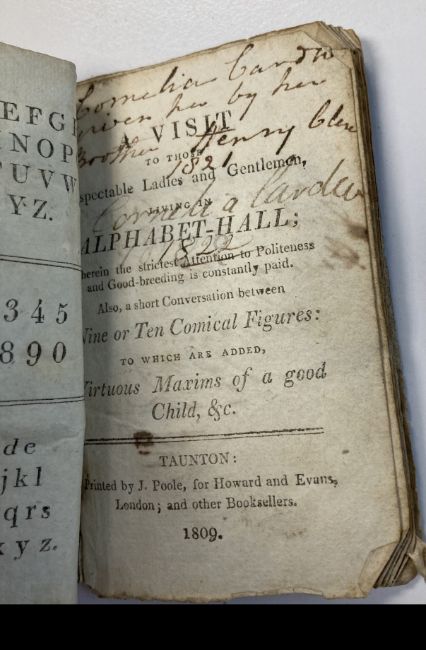 EFGI
NOP
TUVW
Y·Z.
345
890
de
jkl
qrs
xyz.
Cornelia Cardew
given her by her
A VISIT
Brother Henry
TO THOSE
1821
spectable Ladies and Gentlemen,
Cornelia Cardew
LIVING IN
ALPHABET-HALL;
1822
herein the strictest Attention to Politeness
and Good-breeding is constantly paid.
Also, a short Conversation between
Nine or Ten Comical Figures:
TO WHICH ARE ADDED,
Virtuous Maxims of a good
Child, &c.
TAUNTON:
Printed by J. Poole, for Howard and Evans,
London; and other Booksellers.
1809.